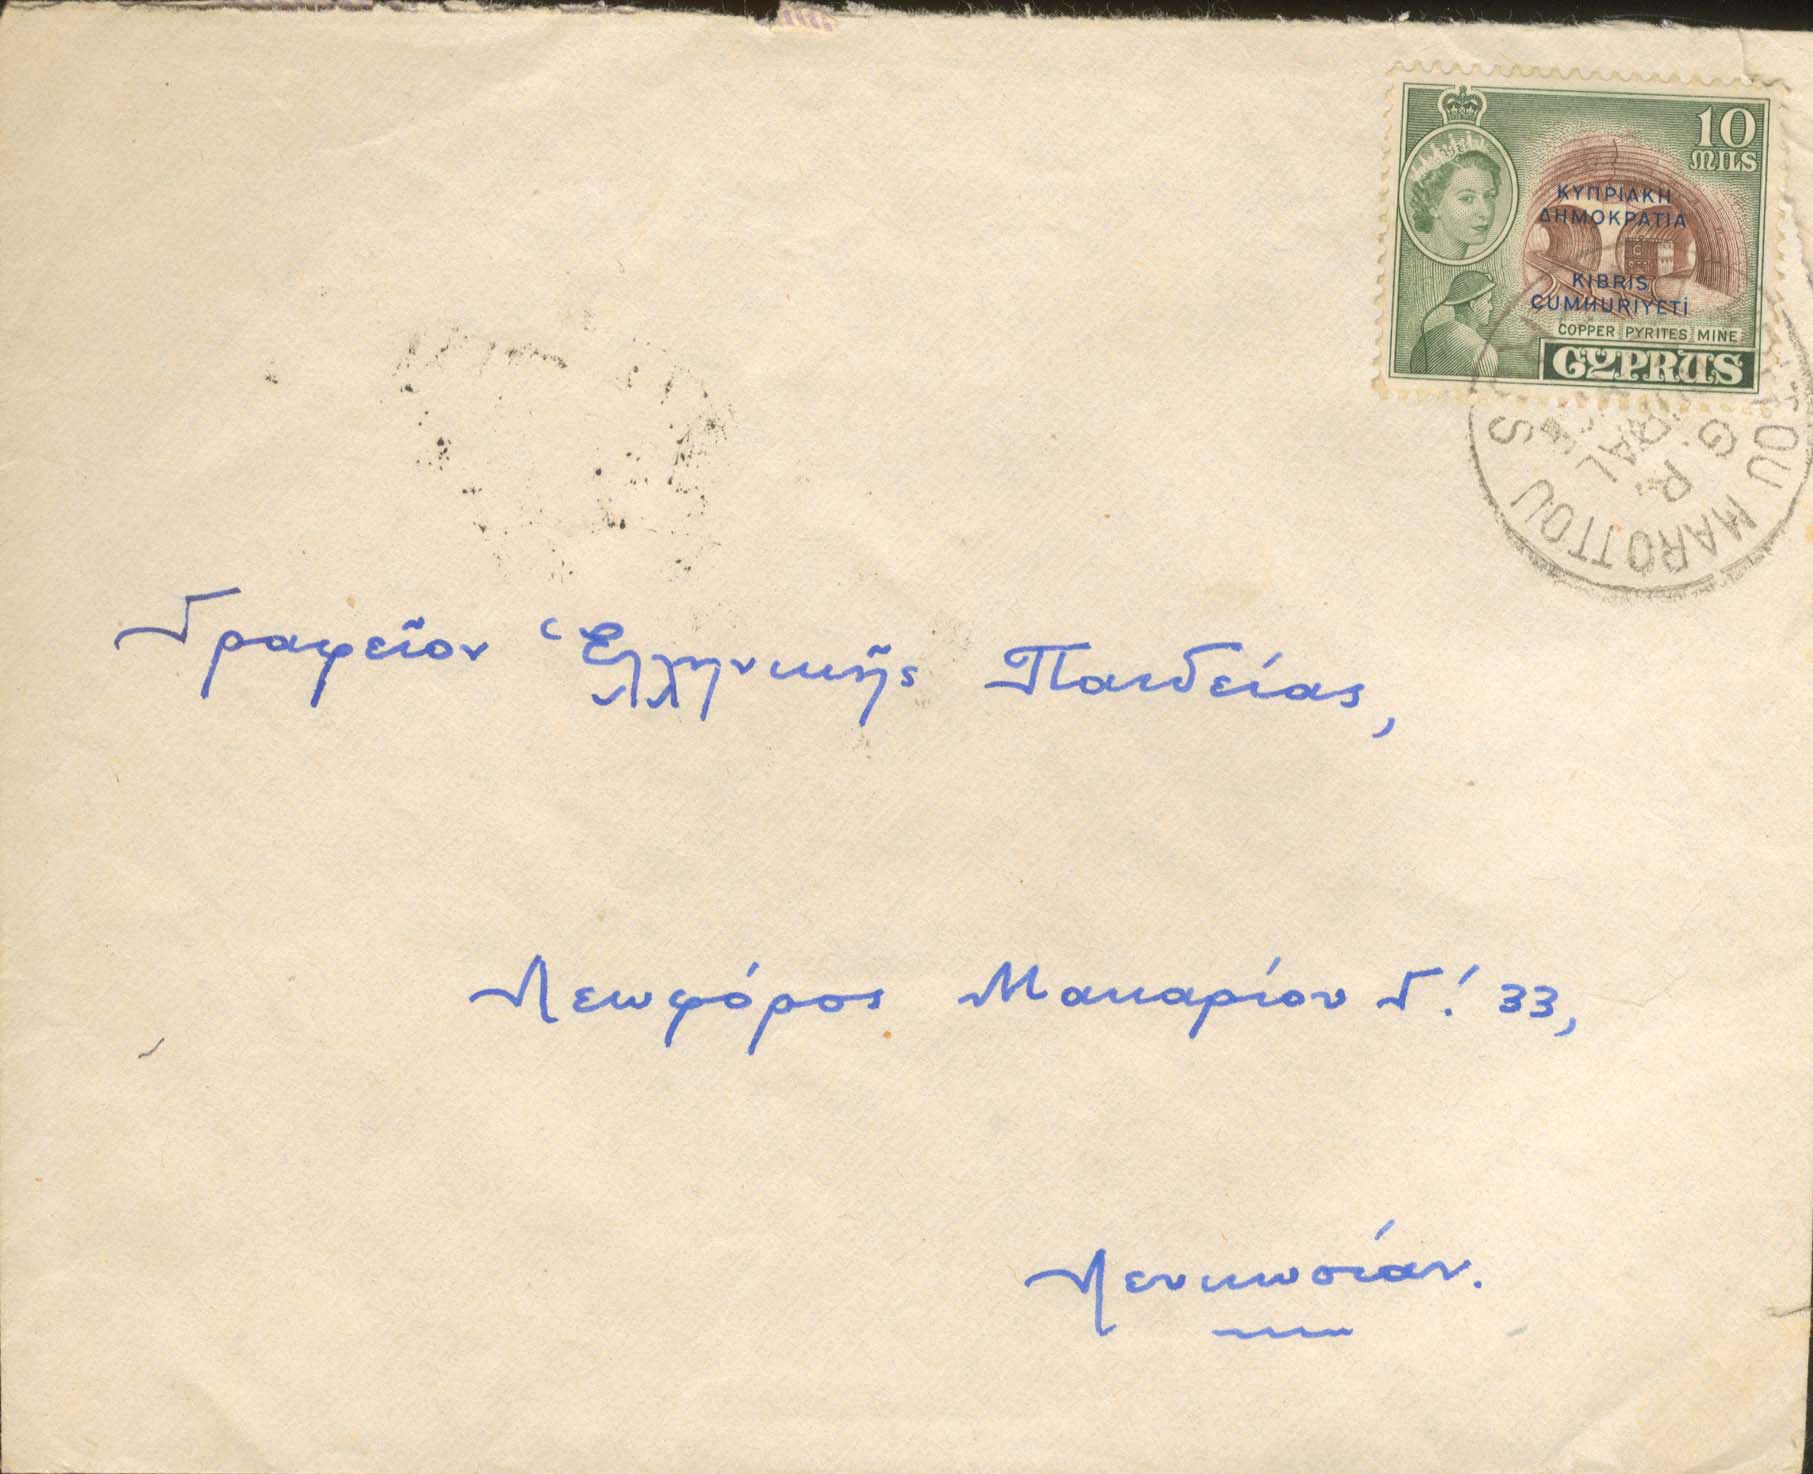 10
MILS
ΚΥΠΡΙΑΚΗ
ΔΗΜΟΚΡΑΤΙΑ
KIBRIS
CUMHURIYETİ
COPPER PYRITES MINE
CYPRUS
MAROTTOU
G. R.
RURAL
Γραφεῖον Ἑλληνικῆς Παιδείας,
Λεωφόρος Μακαρίου Γ΄. 33,
Λευκωσίαν.